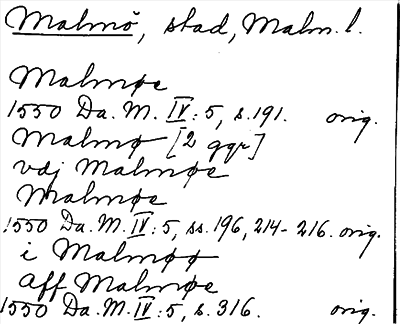 Malmö, stad, Malm. l.
Malmøe
1550 Da. M. IV: 5, s. 191. orig.
Malmø [2 ggr]
vdj Malmøe
Malmøe
1550 Da. M. IV: 5, ss. 196, 214-216. orig.
i Malmøø
aff Malmøe
1550 Da. M. IV: 5, s. 316. orig.